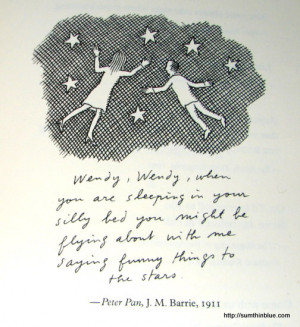 Wendy, Wendy, when
you are sleeping in your
silly bed you might be
flying about with me
saying funny things to
the stars.
—Peter Pan, J. M. Barrie, 1911
http://sumthinblue.com